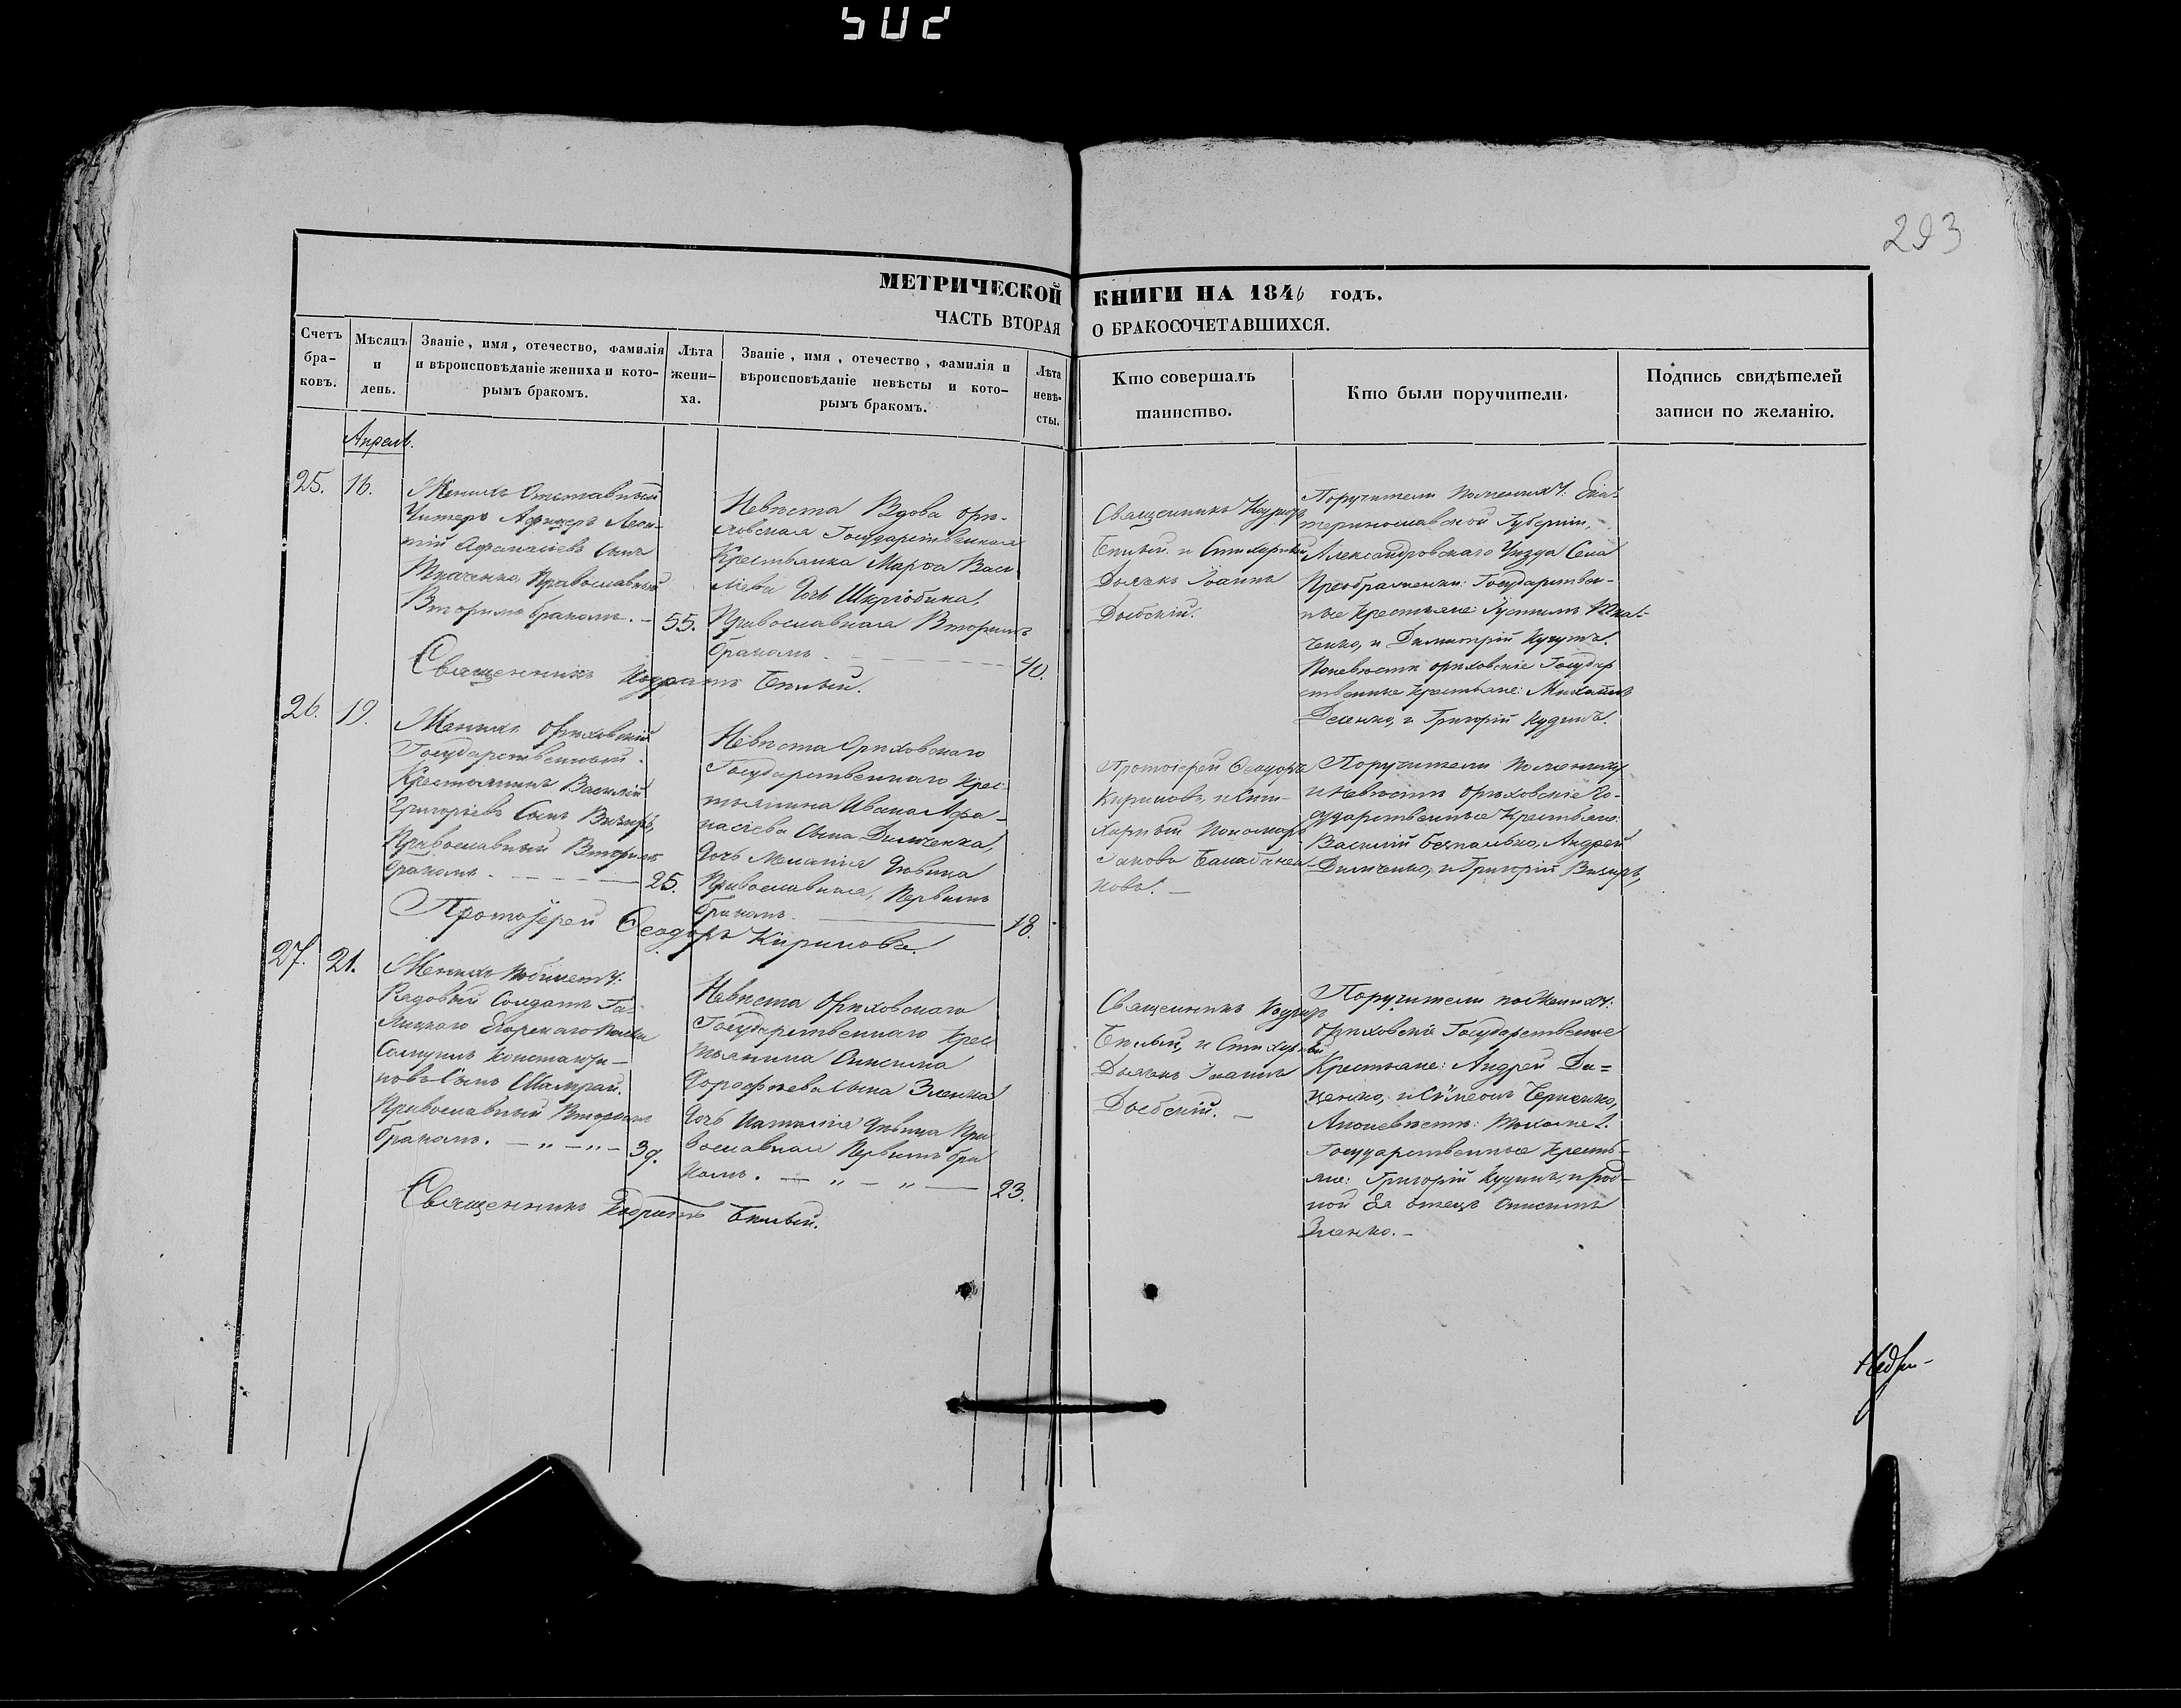 502
293
МЕТРИЧЕСКОЙ КНИГИ НА 1846 годъ.
ЧАСТЬ ВТОРАЯ О БРАКОСОЧЕТАВШИХСЯ.
Счетъ бра-ковъ.
Мѣсяцъ и день.
Званіе, имя, отечество, фамилія
и вѣроисповѣданіе жениха и кото-
рымъ бракомъ.
Лѣта жени-ха.
Званіе, имя, отечество, фамилія и
вѣроисповѣданіе невѣсты и кото-
рымъ бракомъ.
Лѣта невѣ-сты.
Кто совершалъ
таинство.
Кто были поручители.
Подпись свидѣтелей
записи по желанію.
Апрель.
25.
16.
Женихъ Отставный
Унтеръ Афицеръ Леон-
тій Афанасіевъ Сынъ
Ткаченко, Православный
Вторымъ бракомъ. –
55.
Невѣста Вдова орѣ-
ховская Государственная
Крестьянка Марѳа Васи
ліева Дочь
Православная Вторымъ
бракомъ
40.
Священникъ Кодратъ
Бѣлый и Стихарный
Дьячекъ Іоаннъ
Поручители пожениху: Ека-
теринославской Губерніи,
Александровскаго Уѣзда Села
Преображенки: Государствен-
ные Крестьяне: Густинъ Тка-
ченко, и Димитрій
Поневѣсти орѣховскіе Государ
ственные крестьяне: Михаилъ
и Григорій Кудинъ.
Священникъ Кодратъ Бѣлый.
26.
19.
Женихъ Орѣховскій
Государственный
Крестьянинъ Василій
Григоріевъ Сынъ Визиръ,
Православный Вторымъ
бракомъ
25.
Невѣста Орѣховскаго
Государственнаго Крес-
тьянина Ивана Афа-
насіева Сына Димченка,
дочь Меланія Дѣвица
Православная, Первымъ
бракомъ
18.
Протоіерей Ѳеодоръ
Кириловъ, и Сти-
харный Пономарь
Іаковъ
новъ. –
Поручители пожениху
и невѣсти орѣховскіе Го-
сударственные Крестьяне:
Василій Безпалько, Андрей
Димченко, и Григорій Визиръ,
Протоіерей Ѳеодоръ Кириловъ.
27.
21.
Женихъ побилету:
Рядовый Солдатъ Га-
лицкаго Егерскаго Полка
Самуилъ Константи-
новъ Сынъ Шамрай.
Православный Вторымъ
бракомъ. – „ – „ –
39.
Невѣста Орѣховскаго
Государственнаго Крес
тьянина Онисима
Дорофѣева Сына Зленка
дочь Наталія Дѣвица Пра
вославная Первымъ бра
комъ. – „ – „ –
23.
Священникъ Кодратъ
Бѣлый, и Стихарный
Дьячекъ Іоаннъ
Поручители по Жениху:
Орѣховскіе Государственые
Крестьяне: Андрей Ди=
ценко, и Сѵмеонъ Черненко,
Апоневѣсти: Тихоже
Государственные Кресть-
яне: Григорій Кудинъ, и род-
ной Ея отецъ Онисимъ
Зленко. –
Священникъ Кодратъ Бѣлый.